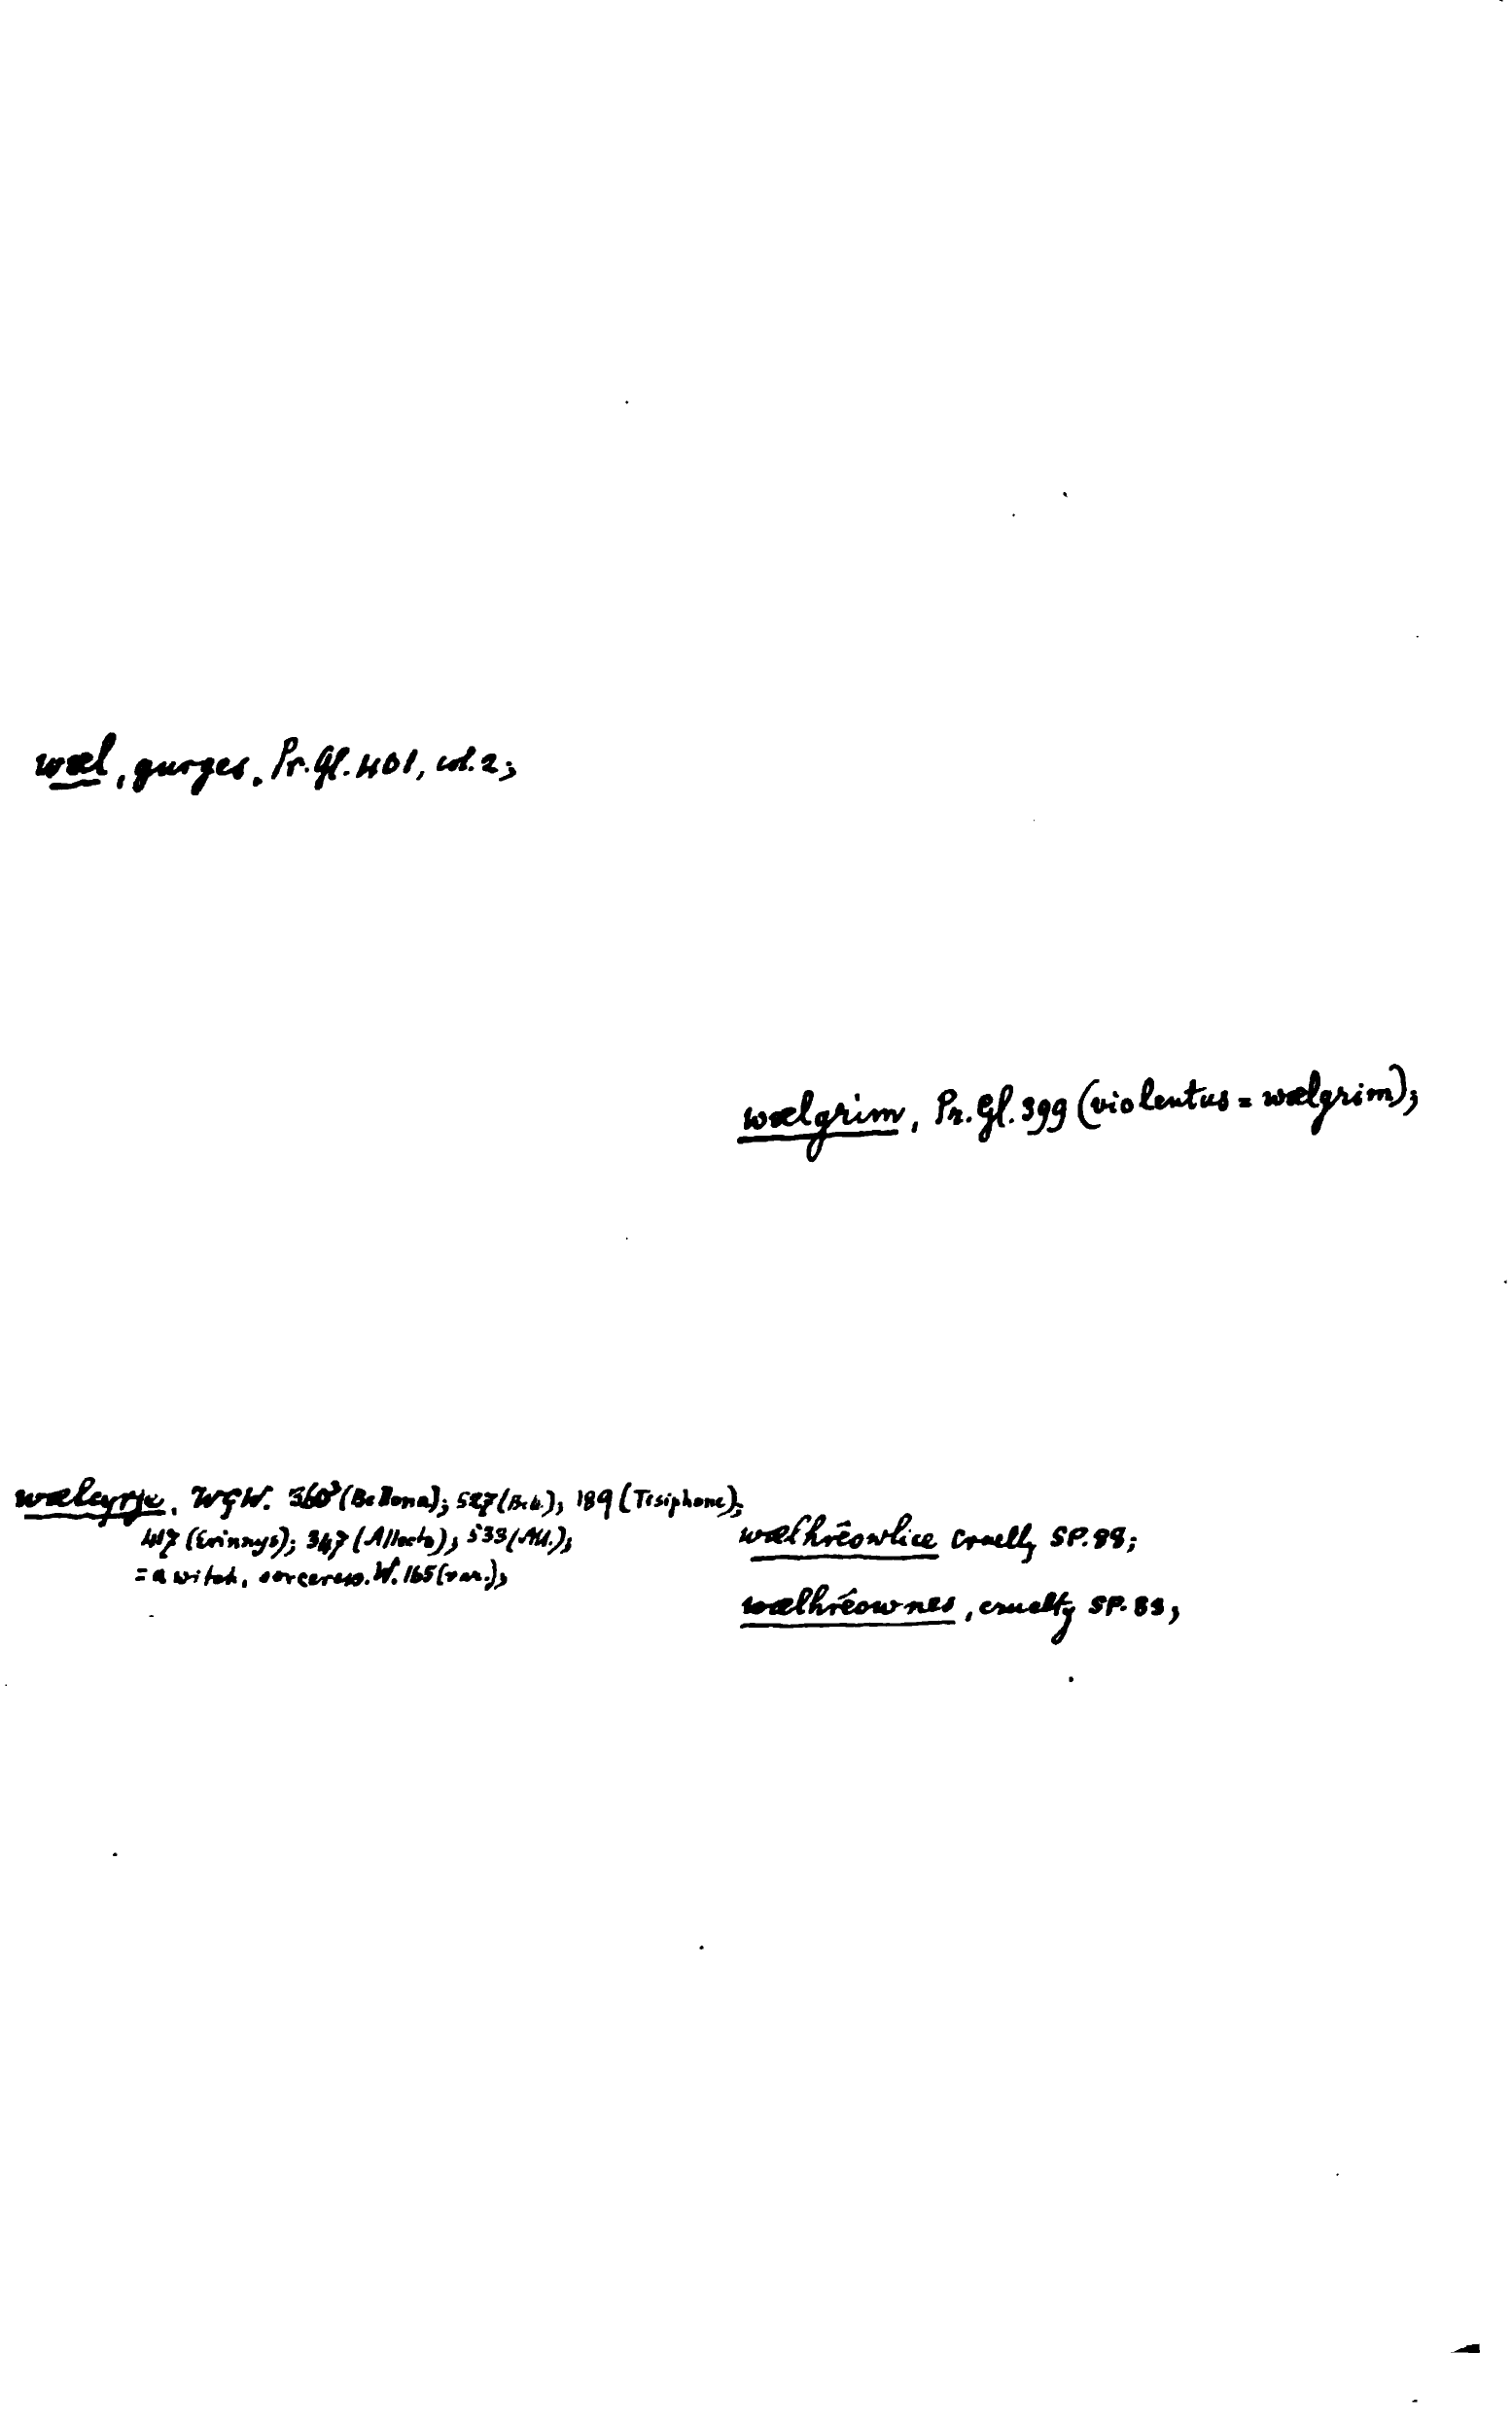 wæl, gurges. Pr. Gl. 401, col. 2;
wælgrim, Pr. Gl. 399 (violentus = wælgrim);
wælcyrje. WGW. 360³ (Bellona); 527 (Beb.); 189 (Tisiphone);
417 (Erinnys); 347 (Allecto); 533 (All.);
= a witch, sorceress. W. 165 (var.);
wælhrêowlice cruelly SP. 88;
wælhrêownes, cruelty SP. 88;